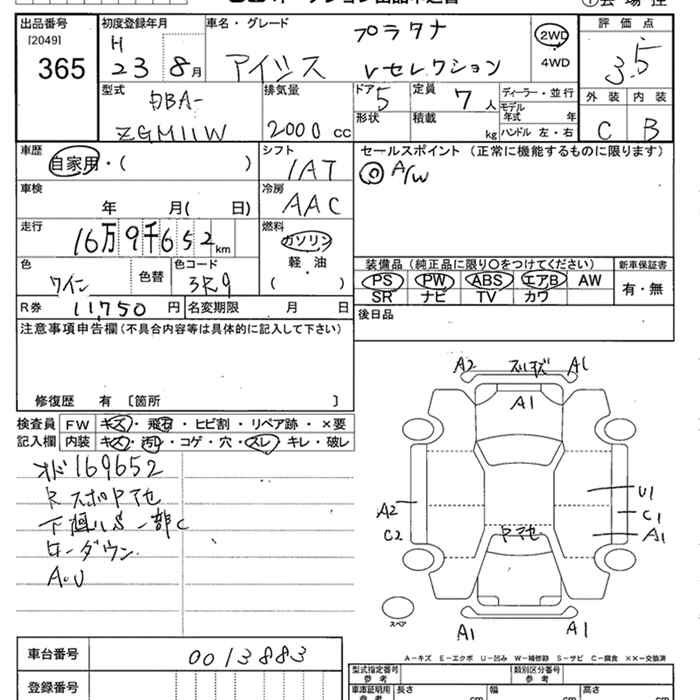 出品番号
[2049]
365
初度登録年月
H
23 8月
車名・グレード
プラタナ
アイシス Vセレクション
2WD
4WD
評価点
3.5
外装 内装
C B
型式
DBA-
ZGM11W
排気量
2000 cc
ドア 5
形状
定員 7 人
積載 kg
ディーラー・並行
モデル
年式 年
ハンドル 左・右
車歴
自家用・( )
シフト
IAT
セールスポイント (正常に機能するものに限ります)
◎ A/W
車検
年 月( 日)
冷房
AAC
走行
16万9千652km
燃料
ガソリン
軽・油
( )
色
ワイン
色替
色コード
3R9
装備品 (純正品に限り〇をつけてください)
新車保証書
PS PW ABS エアB AW
SR ナビ TV カワ
有・無
R券 11,750 円
名変期限 月 日
後日品
注意事項申告欄(不具合内容等は具体的に記入して下さい)
修復歴 有 〔箇所 〕
検査員
記入欄
FW キズ・飛石・ヒビ割・リペア跡・×要
内装 キズ・汚れ・コゲ・穴・スレ・キレ・破レ
オド169652
Rスポヤマセ
下廻りS一部C
ローダウン
A.U
A2 ズレキズ A1
A1
A2
C2
U1
C1
A1
ヤマセ
A1 A1
スペア
A-キズ E-エクボ U-凹み W-補修跡 S-サビ C-腐食 ××-交換済
車台番号
0013883
登録番号
型式指定番号
参考
類別区分番号
参考
車庫証明用
参考
長さ cm
幅 cm
高さ cm